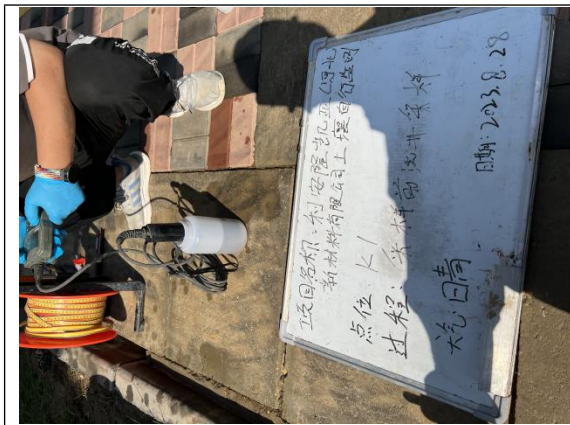 项目名称：利安隆凯亚（河北）
新材料有限公司土壤自行监测
点位：K1
过程：采样前洗井采样
天气：晴
日期：2023.8.28